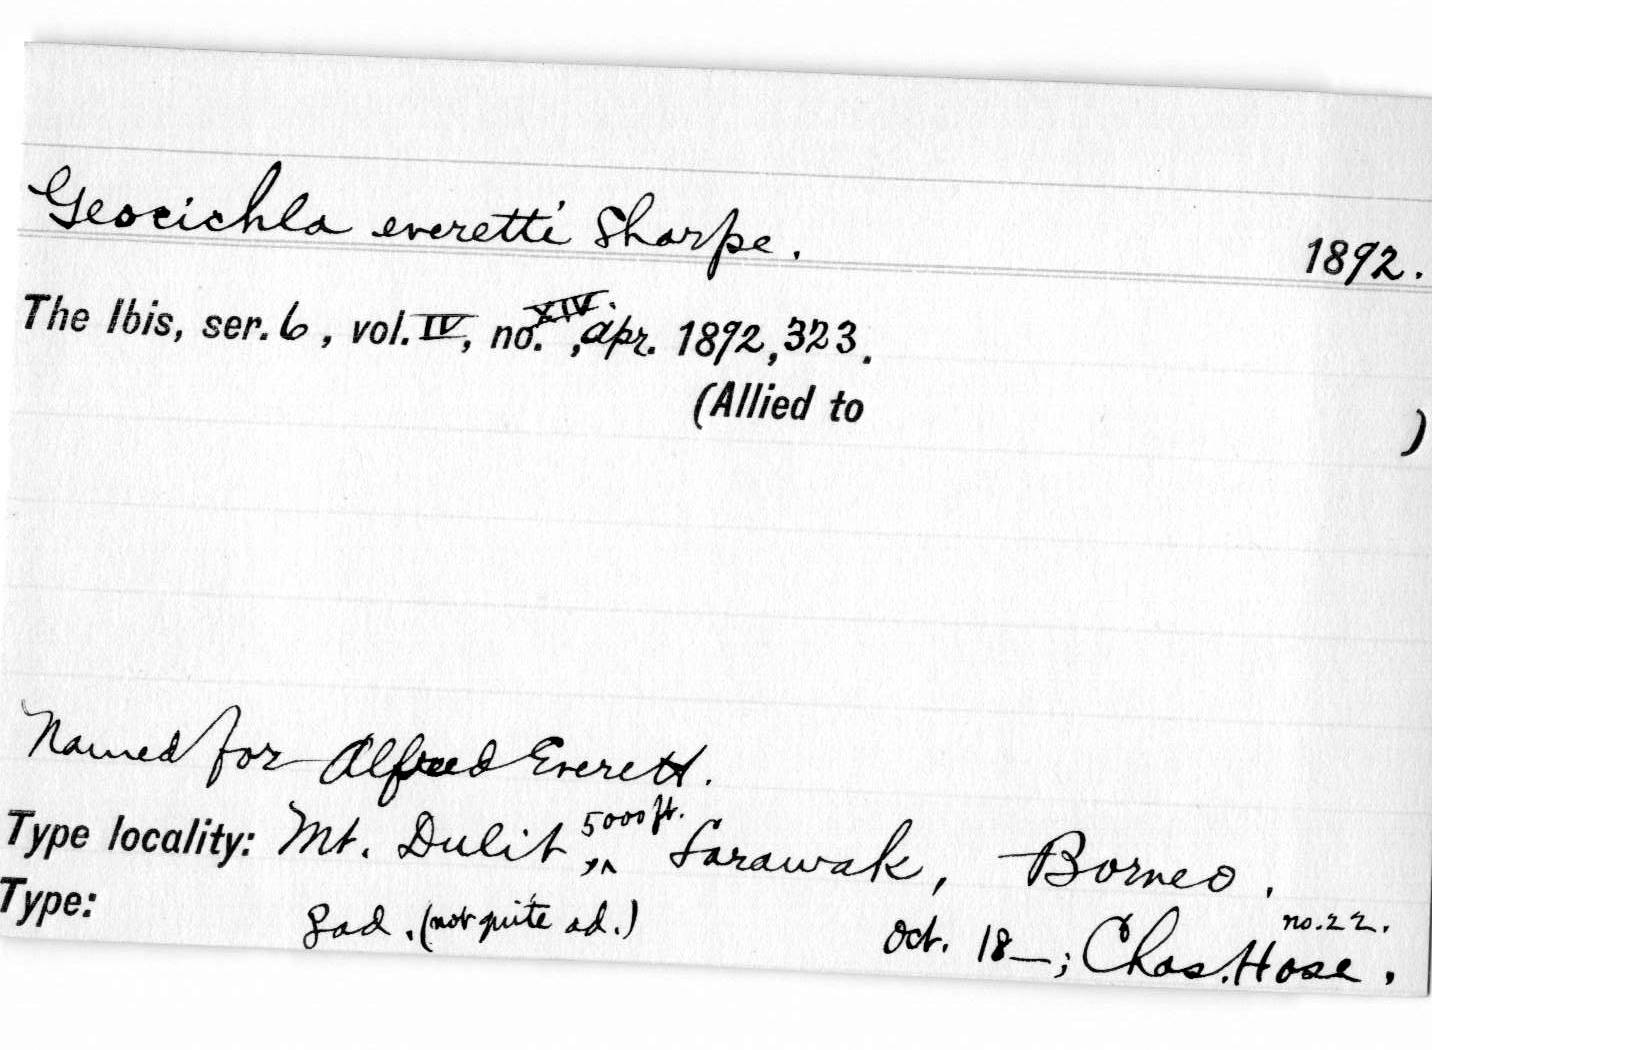 Geocichla everetti Sharpe. 1892.
The Ibis, ser. 6, vol. IV, no. XIV, Apr. 1892, 323.
(Allied to )
Named for Alfred Everett.
Type locality: Mt. Dulit, 5000 ft. Sarawak, Borneo.
Type: ad. (not quite ad.) Oct. 18—; Chas. Hose, no. 22.